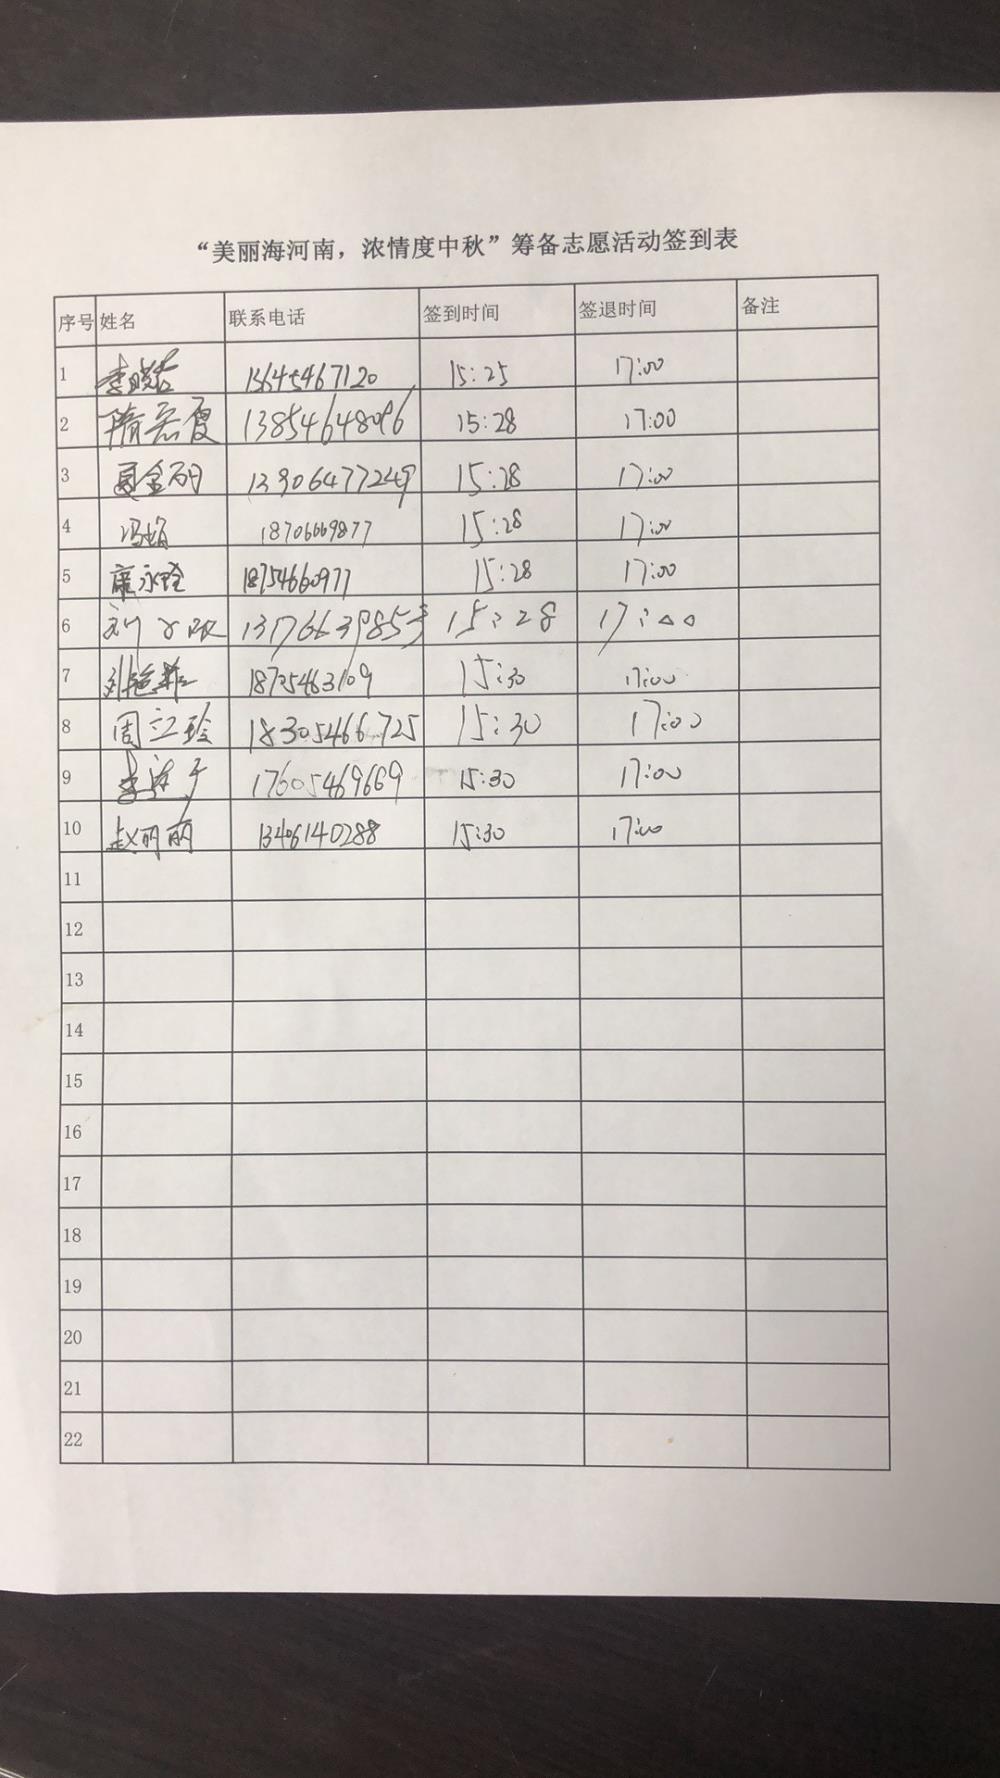 “美丽海河南，浓情度中秋”筹备志愿活动签到表
序号 姓名 联系电话 签到时间 签退时间 备注
1 13645467120 15:25 17:00
2 隋宏霞 13854648096 15:28 17:00
3 13906477249 15:28 17:00
4 冯娟 18706669877 15:28 17:00
5 永 18754660977 15:28 17:00
6 刘 15:28 17:00
7 18725463109 15:30 17:00
8 周立玲 18305466725 15:30 17:00
9 李 17605469669 15:30 17:00
10 赵丽丽 13406140288 15:30 17:00
11
12
13
14
15
16
17
18
19
20
21
22